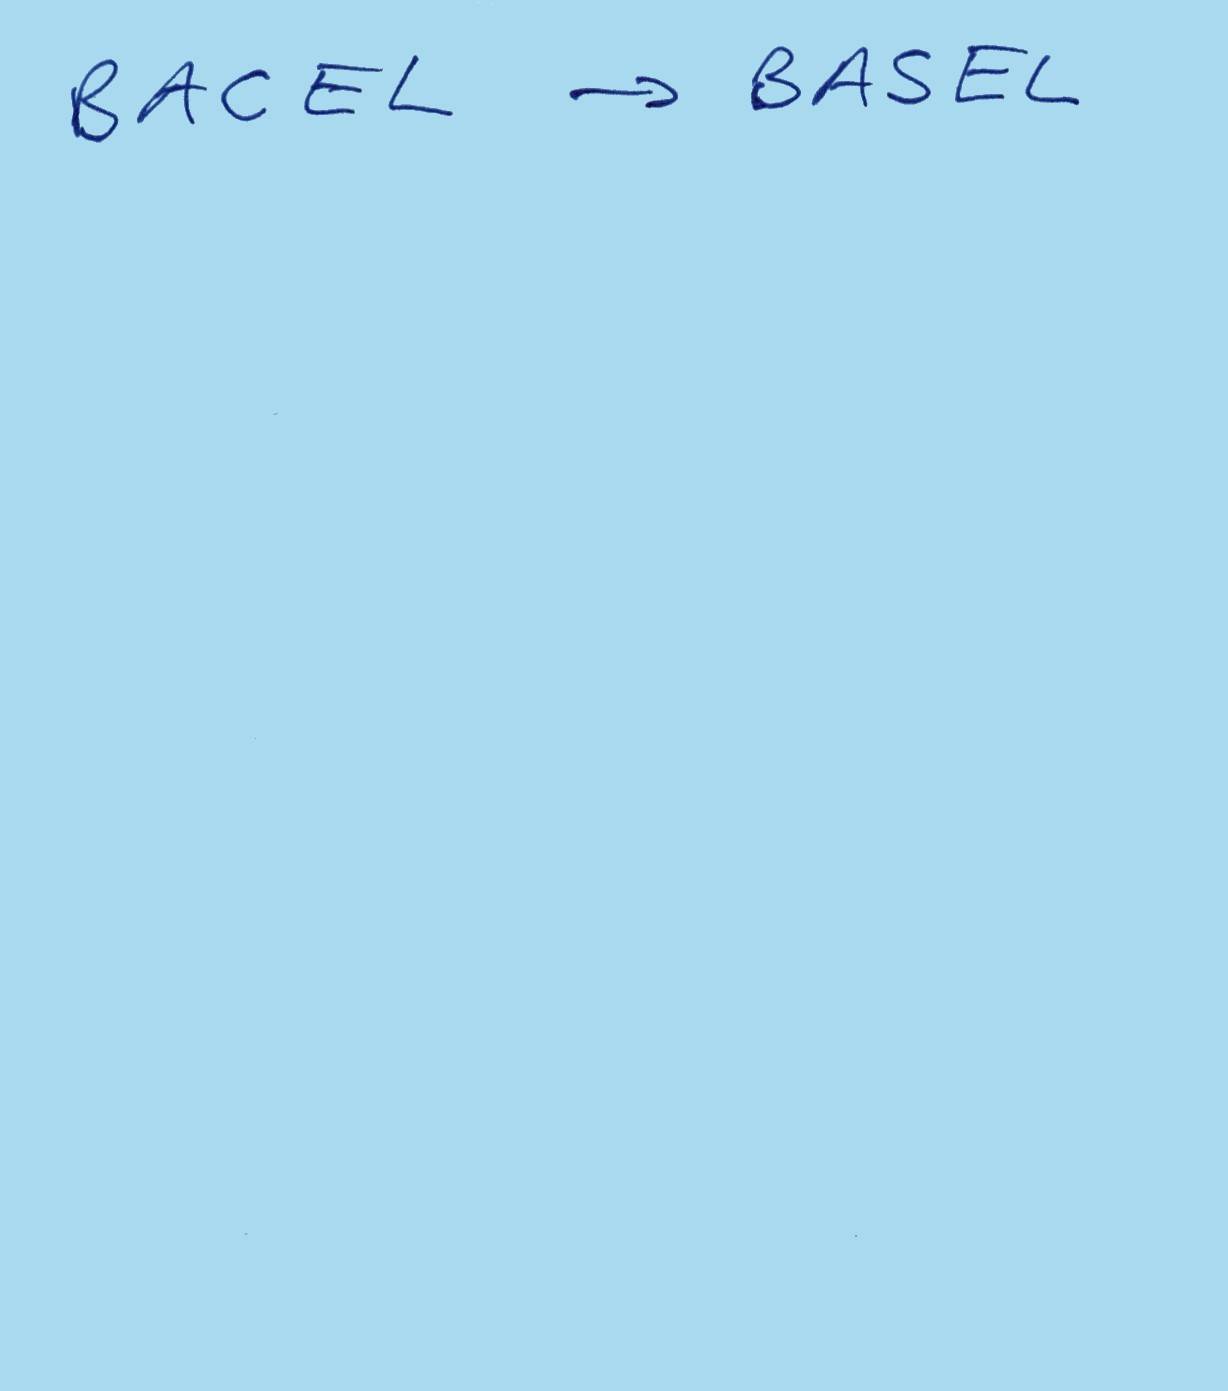 BACEL → BASEL